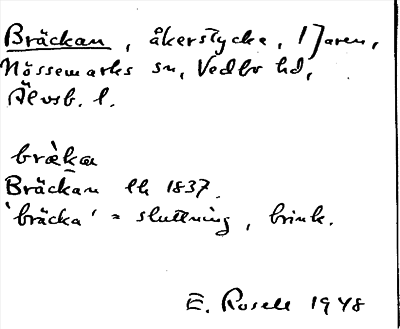 Bräckan, åkerstycke,
Nössemarks sn, Vedbo hd,
Älvsb. l.
Bräckan lh 1837.
'bräcka' = sluttning, brink.
E. Rosell 1948